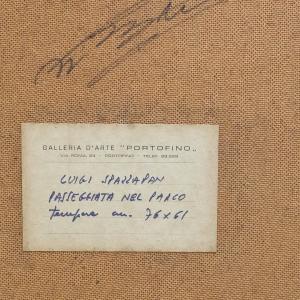 GALLERIA D'ARTE "PORTOFINO"
VIA ROMA - PORTOFINO - TELEF.
LUIGI SPAZZAPAN
PASSEGGIATA NEL PARCO
tempera cm. 76x61